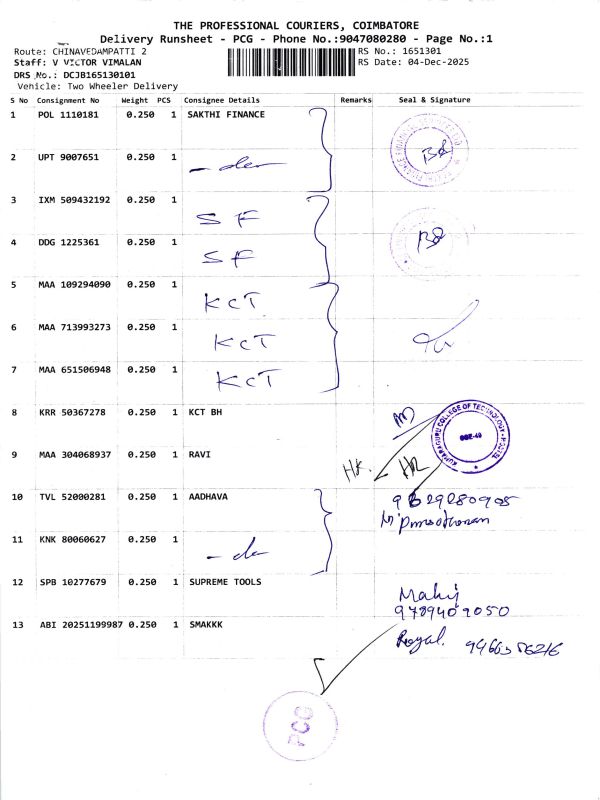 THE PROFESSIONAL COURIERS, COIMBATORE
Delivery Runsheet - PCG - Phone No.:9047080280 - Page No.:1
Route: CHINAVEDAMPATTI 2
RS No.: 1651301
Staff: V VICTOR VIMALAN
RS Date: 04-Dec-2025
DRS No.: DCJB165130101
Vehicle: Two Wheeler Delivery
S No Consignment No Weight PCS Consignee Details Remarks Seal & Signature
1 POL 1110181 0.250 1 SAKTHI FINANCE
2 UPT 9007651 0.250 1
3 IXM 509432192 0.250 1 SF
4 DDG 1225361 0.250 1 SF
5 MAA 109294090 0.250 1 KCT
6 MAA 713993273 0.250 1 KCT
7 MAA 651506948 0.250 1 KCT
8 KRR 50367278 0.250 1 KCT BH
KUMARAGURU COLLEGE OF TECHNOLOGY
9 MAA 304068937 0.250 1 RAVI HK. HR
10 TVL 52000281 0.250 1 AADHAVA
11 KNK 80060627 0.250 1
12 SPB 10277679 0.250 1 SUPREME TOOLS
9789409050
13 ABI 20251199987 0.250 1 SMAKKK Royal.
PCG